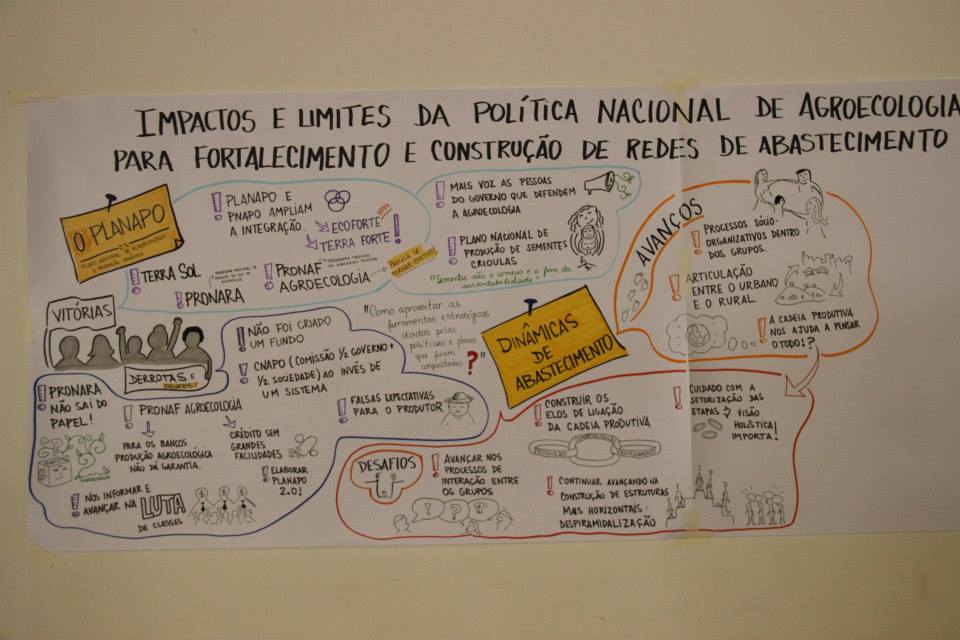 IMPACTOS E LIMITES DA POLÍTICA NACIONAL DE AGROECOLOGIA
PARA FORTALECIMENTO E CONSTRUÇÃO DE REDES DE ABASTECIMENTO
O PLANAPO
PLANO NACIONAL DE AGROECOLOGIA
E PRODUÇÃO ORGÂNICA
! PLANAPO E
PNAPO AMPLIAM
A INTEGRAÇÃO.
ECOFORTE
TERRA FORTE !
! TERRA SOL
! PRONARA
! PRONAF
AGROECOLOGIA
! MAIS VOZ AS PESSOAS
DO GOVERNO QUE DEFENDEM
A AGROECOLOGIA
! PLANO NACIONAL DE
PRODUÇÃO DE SEMENTES
CRIOULAS
"Sementes são o começo e o fim da
sustentabilidade"
VITÓRIAS
DERROTAS E
! NÃO FOI CRIADO
UM FUNDO
! CNAPO (COMISSÃO 1/2 GOVERNO +
1/2 SOCIEDADE) AO INVÉS DE
UM SISTEMA
! FALSAS EXPECTATIVAS
PARA O PRODUTOR
! PRONARA
NÃO SAI DO
PAPEL!
! PRONAF AGROECOLOGIA
PARA OS BANCOS
PRODUÇÃO AGROECOLÓGICA
NÃO DÁ GARANTIA.
CRÉDITO SEM
GRANDES
FACILIDADES
! ELABORAR
PLANAPO
2.0!
! NOS INFORMAR E
AVANÇAR NA LUTA
DE CLASSES
"Como aproveitar as
ferramentas estratégicas
dadas pelas
políticas e planos
que foram
conquistados ?"
DINÂMICAS
DE
ABASTECIMENTO
AVANÇOS
! PROCESSOS SÓCIO-
ORGANIZATIVOS DENTRO
DOS GRUPOS.
! ARTICULAÇÃO
ENTRE O URBANO
E O RURAL.
! A CADEIA PRODUTIVA
NOS AJUDA A PENSAR
O TODO!?
DESAFIOS
! AVANÇAR NOS
PROCESSOS DE
INTERAÇÃO ENTRE
OS GRUPOS
! ? ?
! CONSTRUIR OS
ELOS DE LIGAÇÃO
DA CADEIA PRODUTIVA
PRODUÇÃO
! CONTINUAR AVANÇANDO NA
CONSTRUÇÃO DE ESTRUTURAS
MAIS HORIZONTAIS:
DESPIRAMIDALIZAÇÃO
! CUIDADO COM A
SETORIZAÇÃO DAS
ETAPAS → VISÃO
HOLÍSTICA
IMPORTA!